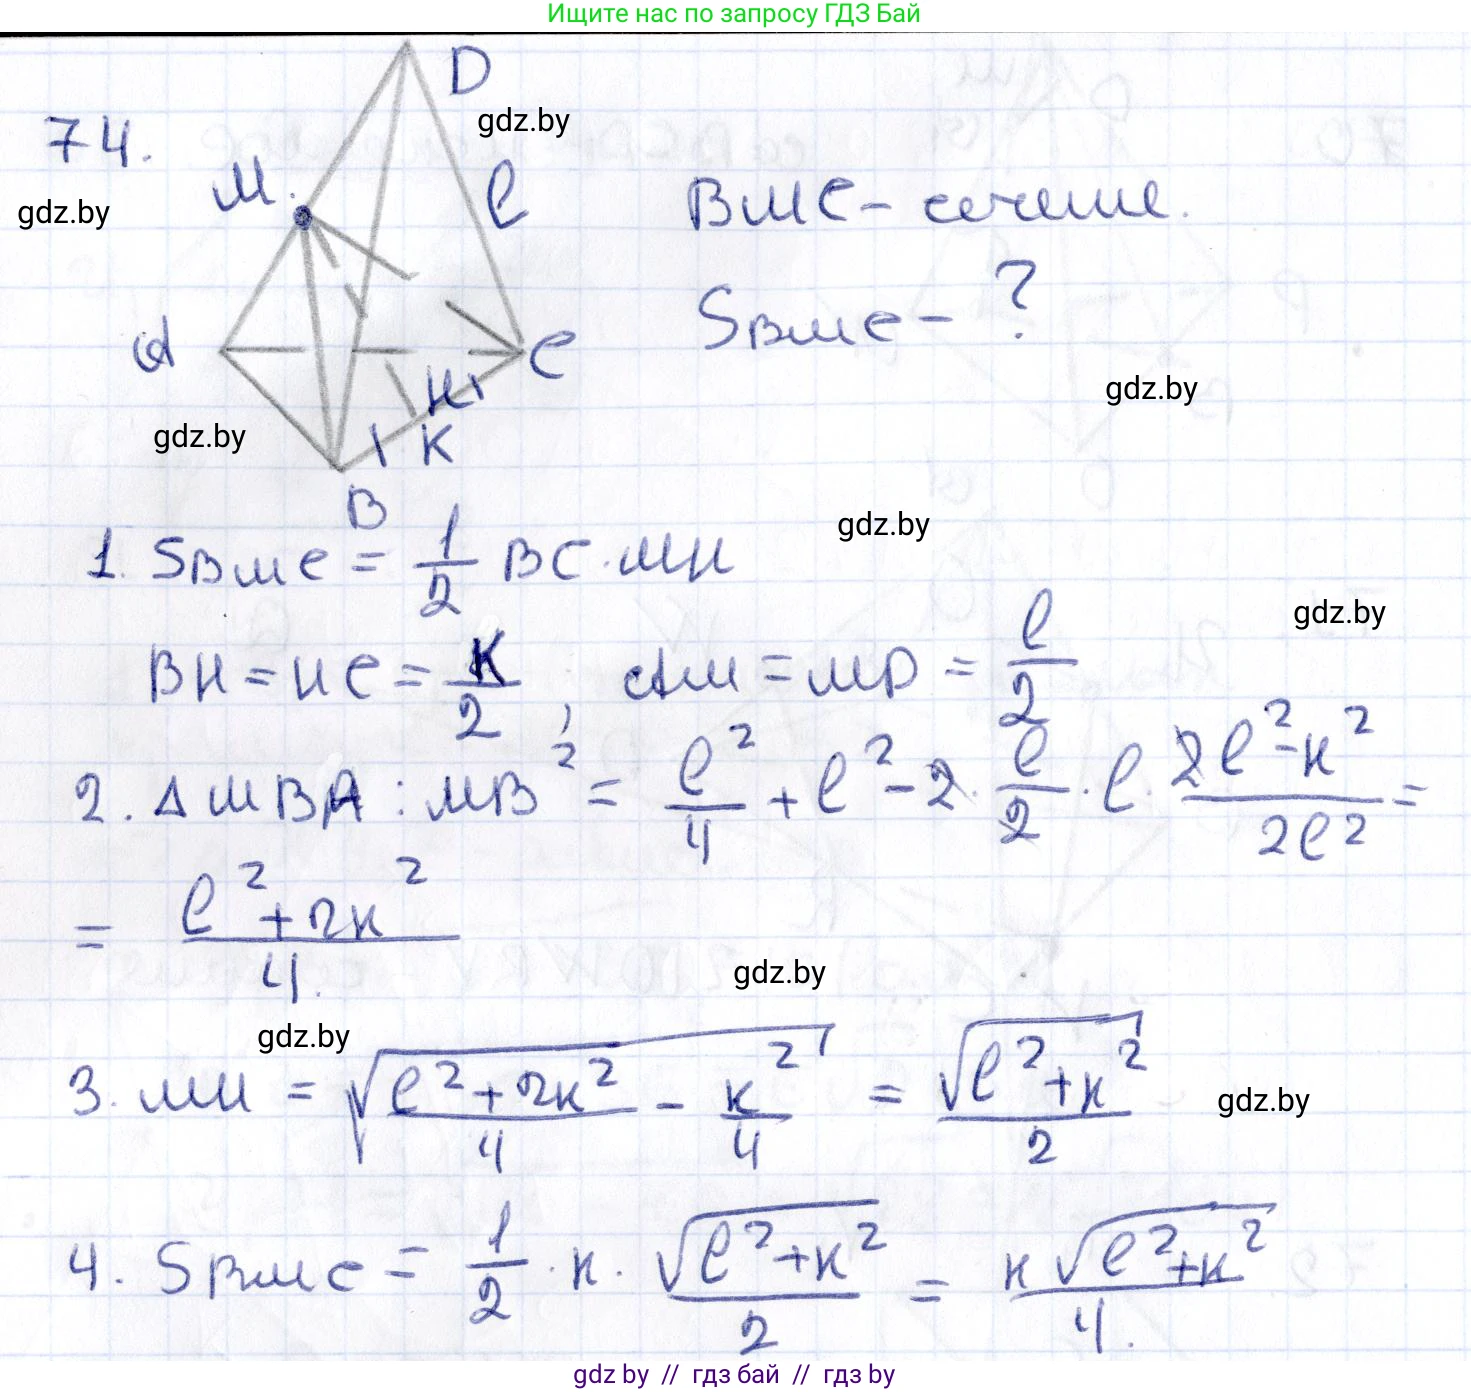 Ищите нас по запросу ГДЗ Бай
74.
D
gdz.by
M.
l
gdz.by
BMC - сечение.
SBMC - ?
A
C
H
K
gdz.by
gdz.by
B
gdz.by
1. SBMC = 1/2 BC · MH
gdz.by
BH = HC = K/2, AM = MD = l/2
2. ΔMBA : MB² = l²/4 + l² - 2 · l/2 · l · (2l² - к²)/2l² =
= (l² + 2к²)/4.
gdz.by
gdz.by
3. MH = √((l² + 2к²)/4 - к²/4) = √(l² + к²)/2
gdz.by
4. SBMC = 1/2 · к · √(l² + к²)/2 = к√(l² + к²)/4.
gdz.by // гдз бай // гдз by